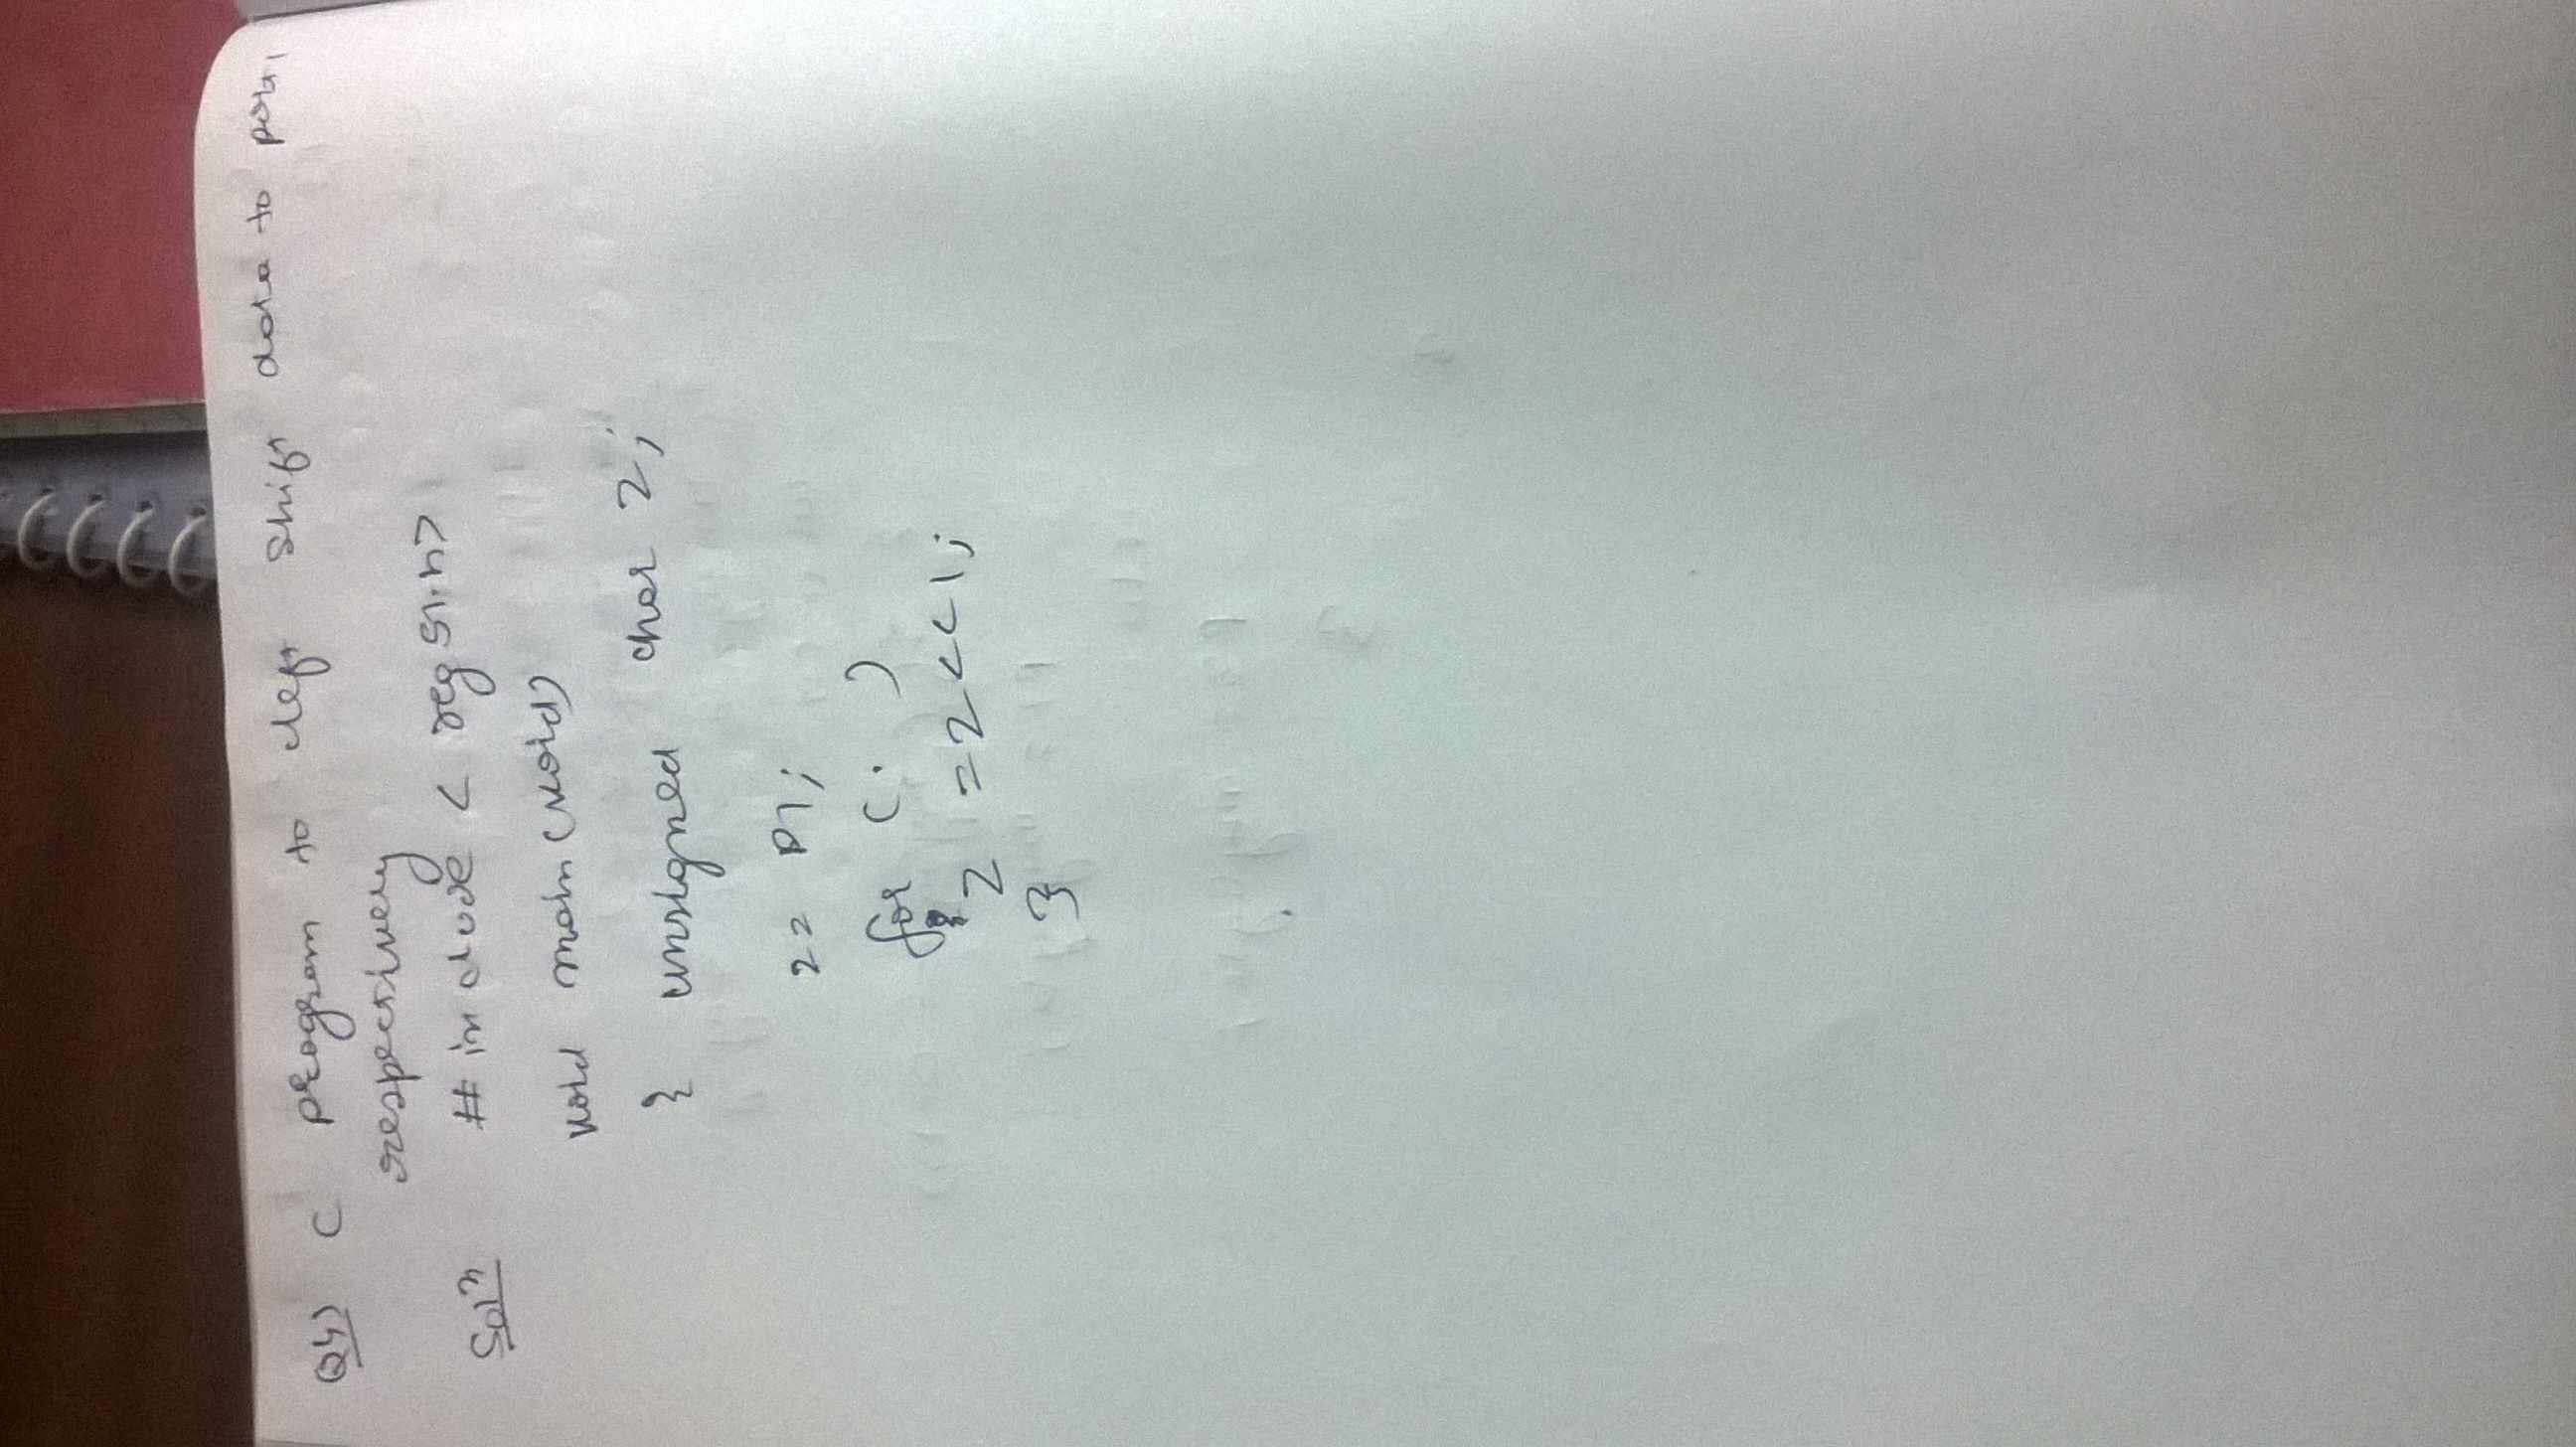 Q4) C program to left shift data to port 1
respectively
Soln # include < reg 51.h>
void main (void)
{ unsigned char z;
z = P1;
for (; )
{ z = z << 1;
}